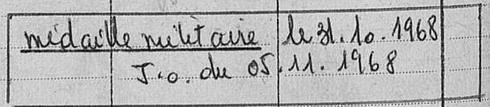 médaille militaire le 31.10.1968
J.o. du 05.11.1968